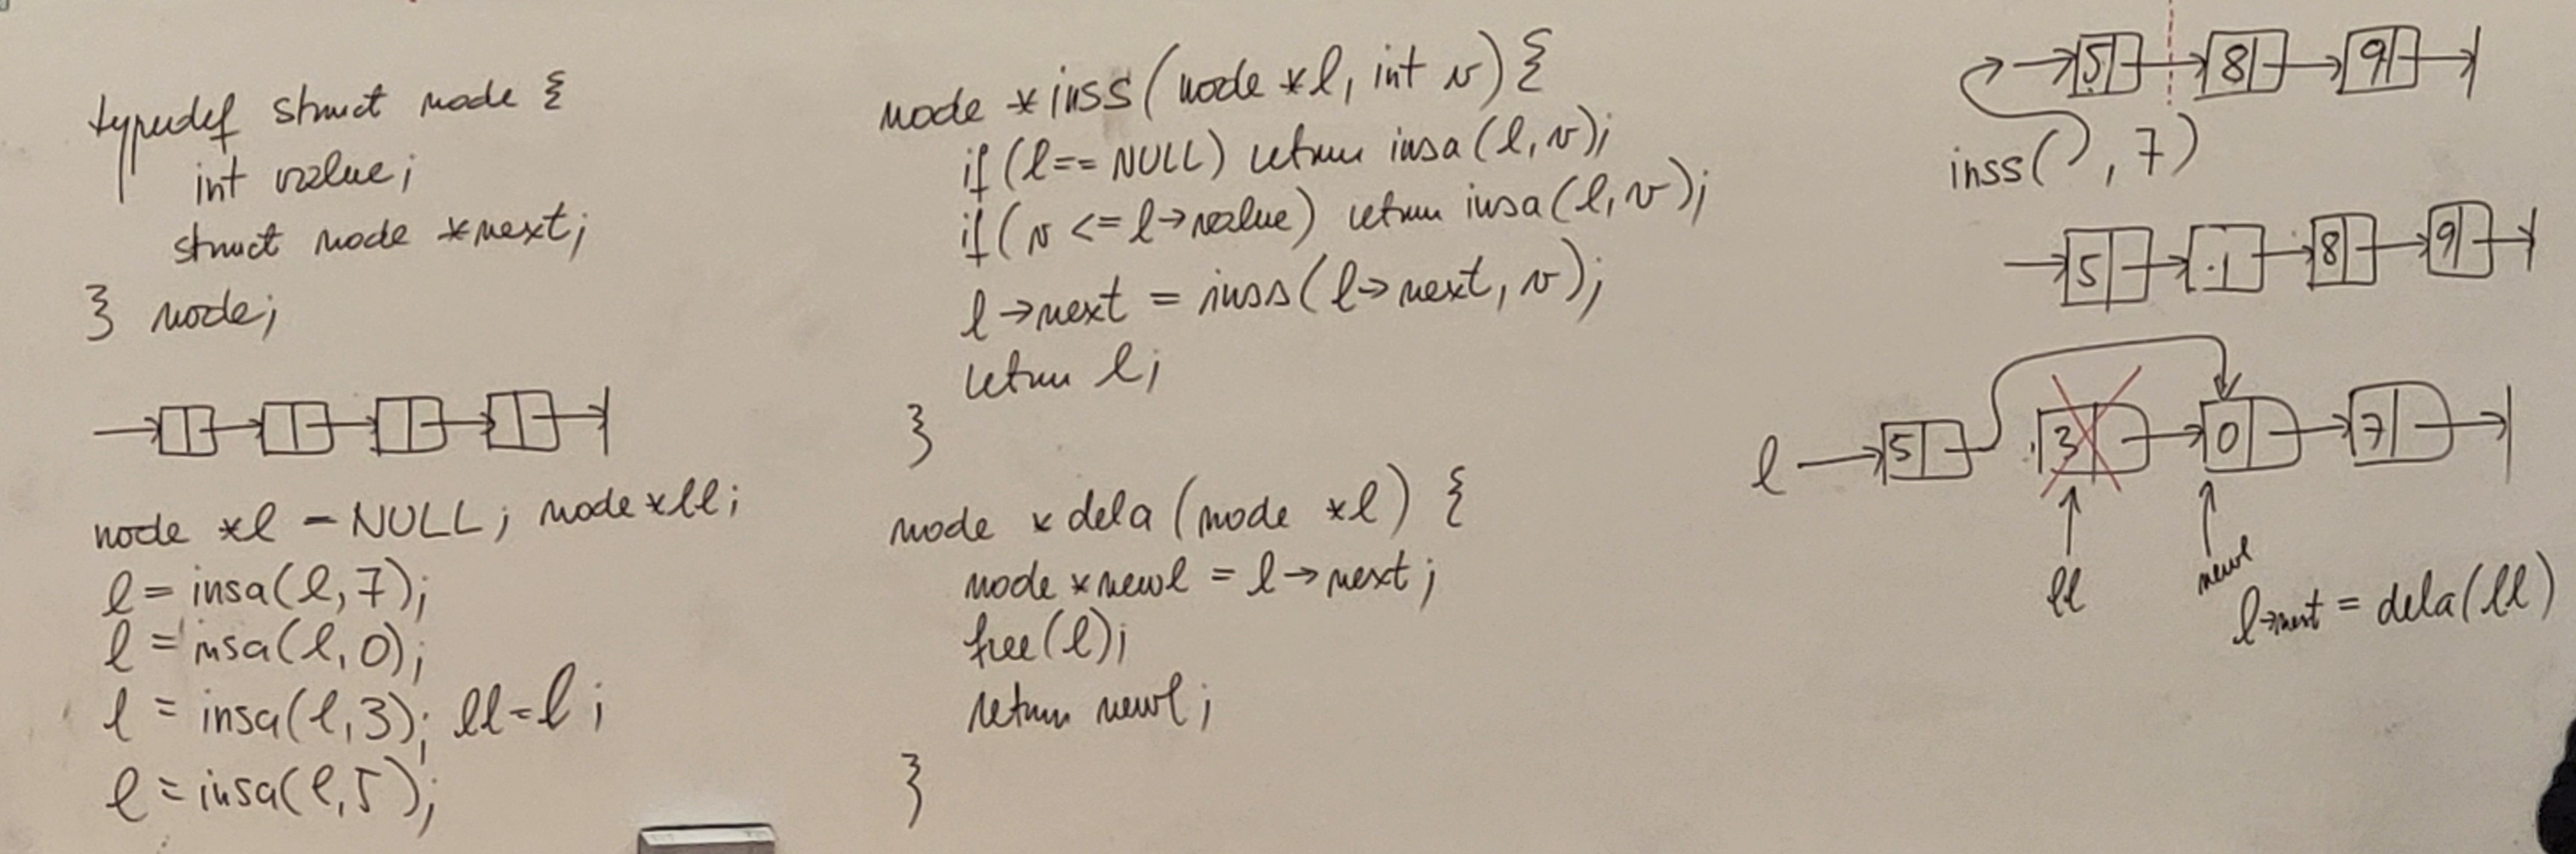 typedef struct node {
int value;
struct node *next;
} node;
node *l = NULL; node *ll;
l = insa(l,7);
l = insa(l,0);
l = insa(l,3); ll=l;
l = insa(l,5);
node *inss(node *l, int v) {
if (l== NULL) return insa(l,v);
if (v <= l->value) return insa(l,v);
l->next = inss(l->next, v);
return l;
}
node *dela (node *l) {
node *newl = l->next;
free(l);
return newl;
}
5 8 9
inss( , 7)
5 8 9
l 5 3 0 7
ll newl
l->next = dela(ll)